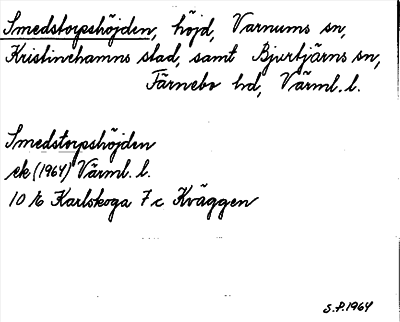 Smedstorpshöjden, höjd, Varnums sn,
Kristinehamns stad, samt Bjurtjärns sn,
Färnebo hd, Värml. l.
Smedstorpshöjden
ek (1964) Värml. l.
10 E Karlskoga 7 c Kväggen
S.P. 1964